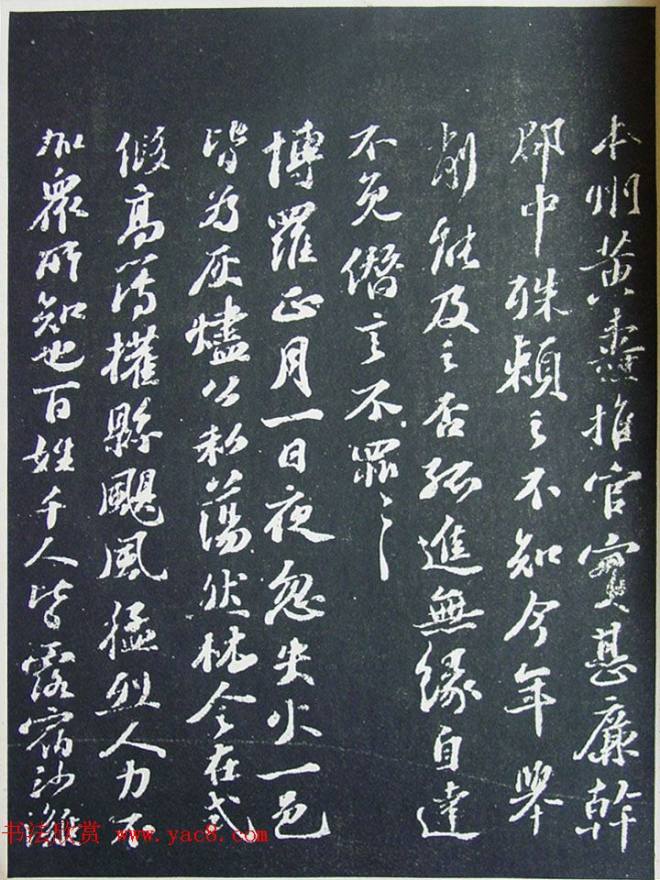 本州黃燾推官實甚廉幹
郡中殊賴之不知今年舉
削能及之否孤進無緣自達
不免僭言不罪〻
博羅正月一日夜忽失火一邑
皆為灰燼公私蕩然林令在式
假高簿權縣颶風猛烈人力不
加眾所知也百姓千人皆露宿沙灘
书法欣赏 www.yac8.com